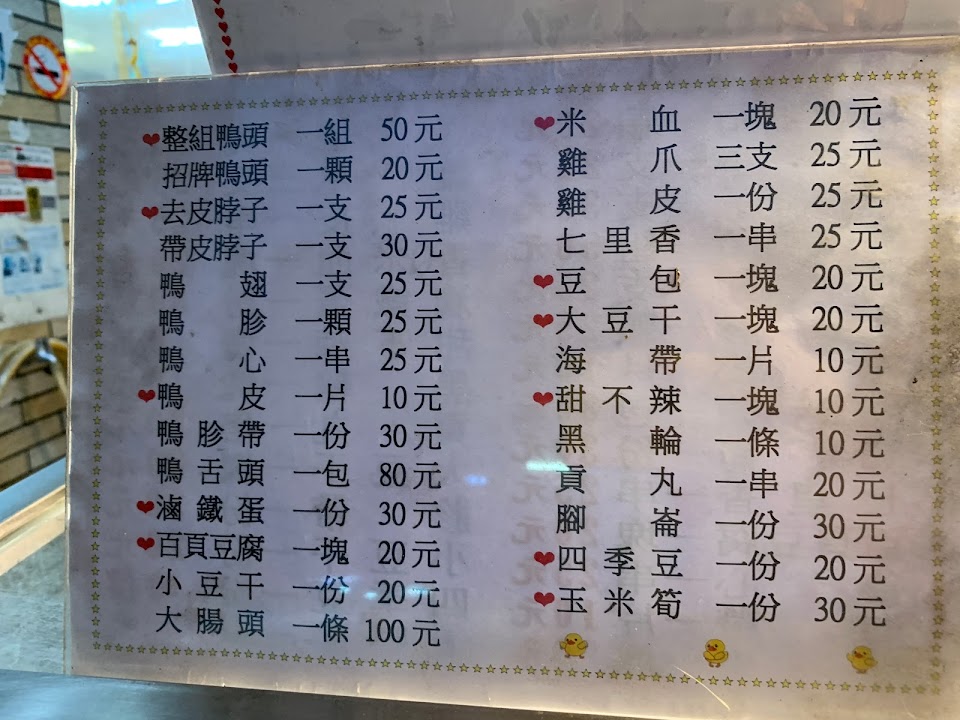 ❤整組鴨頭 一組 50元
招牌鴨頭 一顆 20元
❤去皮脖子 一支 25元
帶皮脖子 一支 30元
鴨翅 一支 25元
鴨胗 一顆 25元
鴨心 一串 25元
❤鴨皮 一片 10元
鴨胗帶 一份 30元
鴨舌頭 一包 80元
❤滷鐵蛋 一份 30元
❤百頁豆腐 一塊 20元
小豆干 一份 20元
大腸頭 一條 100元
❤米血 一塊 20元
雞爪 三支 25元
雞皮 一份 25元
七里香 一串 25元
❤豆包 一塊 20元
❤大豆干 一塊 20元
海帶 一片 10元
❤甜不辣 一塊 10元
黑輪 一條 10元
貢丸 一串 20元
腳崙 一份 30元
❤四季豆 一份 20元
❤玉米筍 一份 30元